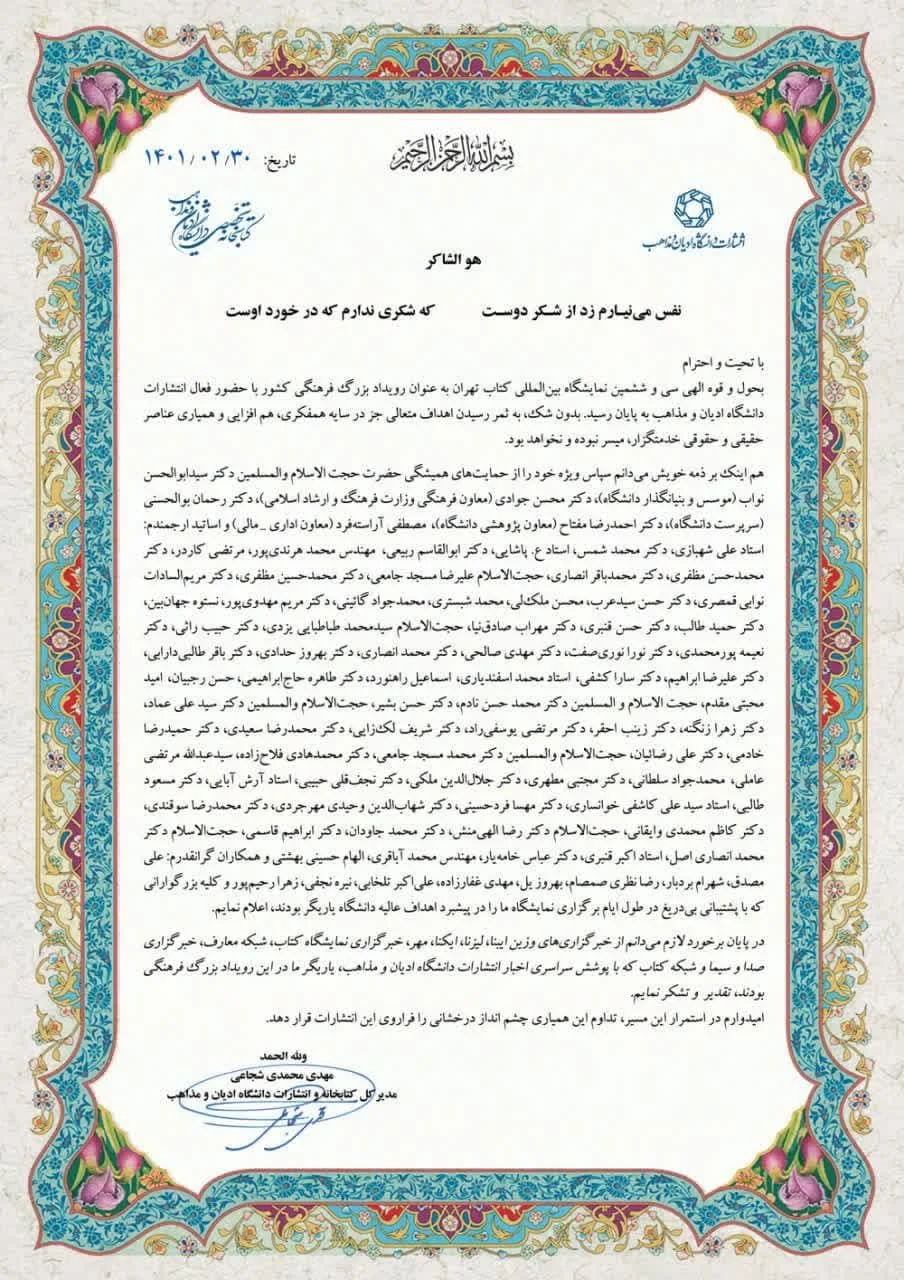 بسم الله الرحمن الرحیم
تاریخ: ۱۴۰۱/۰۲/۳۰
انتشارات دانشگاه ادیان و مذاهب
کتابخانه تخصصی دانشگاه ادیان و مذاهب
هو الشاکر
نفس می‌نیـارم زد از شـکر دوسـت که شکری ندارم که در خورد اوست
با تحیت و احترام
بحول و قوه الهی سی و ششمین نمایشگاه بین‌المللی کتاب تهران به عنوان رویداد بزرگ فرهنگی کشور با حضور فعال انتشارات
دانشگاه ادیان و مذاهب به پایان رسید. بدون شک، به ثمر رسیدن اهداف متعالی جز در سایه همفکری، هم افزایی و همیاری عناصر
حقیقی و حقوقی خدمتگزار، میسر نبوده و نخواهد بود.
هم اینک بر ذمه خویش می‌دانم سپاس ویژه خود را از حمایت‌های همیشگی حضرت حجت الاسلام والمسلمین دکتر سیدابوالحسن
نواب (موسس و بنیانگذار دانشگاه)، دکتر محسن جوادی (معاون فرهنگی وزارت فرهنگ و ارشاد اسلامی)، دکتر رحمان بوالحسنی
(سرپرست دانشگاه)، دکتر احمدرضا مفتاح (معاون پژوهشی دانشگاه)، مصطفی آراسته‌فرد (معاون اداری _مالی) و اساتید ارجمندم:
استاد علی شهبازی، دکتر محمد شمس، استاد ع. پاشایی، دکتر ابوالقاسم ربیعی، مهندس محمد هرندی‌پور، مرتضی کاردر، دکتر
محمدحسن مظفری، دکتر محمدباقر انصاری، حجت‌الاسلام علیرضا مسجد جامعی، دکتر محمدحسین مظفری، دکتر مریم‌السادات
نوابی قمصری، دکتر حسن سیدعرب، محسن ملک‌لی، محمد شبستری، محمدجواد گائینی، دکتر مریم مهدوی‌پور، نستوه جهان‌بین،
دکتر حمید طالب، دکتر حسن قنبری، دکتر مهراب صادق‌نیا، حجت‌الاسلام سیدمحمد طباطبایی یزدی، دکتر حبیب راثی، دکتر
نعیمه پورمحمدی، دکتر نورا نوری‌صفت، دکتر مهدی صالحی، دکتر محمد انصاری، دکتر بهروز حدادی، دکتر باقر طالبی‌دارابی،
دکتر علیرضا ابراهیم، دکتر سارا کشفی، استاد محمد اسفندیاری، اسماعیل راهنورد، دکتر طاهره حاج‌ابراهیمی، حسن رجبیان، امید
محبتی مقدم، حجت الاسلام و المسلمین دکتر محمد حسن نادم، دکتر حسن بشیر، حجت‌الاسلام والمسلمین دکتر سید علی عماد،
دکتر زهرا زنگنه، دکتر زینب احقر، دکتر مرتضی یوسفی‌راد، دکتر شریف لک‌زایی، دکتر محمدرضا سعیدی، دکتر حمیدرضا
خادمی، دکتر علی رضائیان، حجت‌الاسلام والمسلمین دکتر محمد مسجد جامعی، دکتر محمدهادی فلاح‌زاده، سیدعبدالله مرتضی
عاملی، محمدجواد سلطانی، دکتر مجتبی مطهری، دکتر جلال‌الدین ملکی، دکتر نجف‌قلی حبیبی، استاد آرش آبایی، دکتر مسعود
طالبی، استاد سید علی کاشفی خوانساری، دکتر مهسا فردحسینی، دکتر شهاب‌الدین وحیدی مهرجردی، دکتر محمدرضا سوقندی،
دکتر کاظم محمدی وایقانی، حجت‌الاسلام دکتر رضا الهی‌منش، دکتر محمد جاودان، دکتر ابراهیم قاسمی، حجت‌الاسلام دکتر
محمد انصاری اصل، استاد اکبر قنبری، دکتر عباس خامه‌یار، مهندس محمد آباقری، الهام حسینی بهشتی و همکاران گرانقدرم: علی
مصدق، شهرام بردبار، رضا نظری صمصام، بهروز یل، مهدی غفارزاده، علی‌اکبر تلخابی، نیره نجفی، زهرا رحیم‌پور و کلیه بزرگوارانی
که با پشتیبانی بی‌دریغ در طول ایام برگزاری نمایشگاه ما را در پیشبرد اهداف عالیه دانشگاه یاریگر بودند، اعلام نمایم.
در پایان برخورد لازم می‌دانم از خبرگزاری‌های وزین ایبنا، لیزنا، ایکنا، مهر، خبرگزاری نمایشگاه کتاب، شبکه معارف، خبرگزاری
صدا و سیما و شبکه کتاب که با پوشش سراسری اخبار انتشارات دانشگاه ادیان و مذاهب، یاریگر ما در این رویداد بزرگ فرهنگی
بودند، تقدیر و تشکر نمایم.
امیدوارم در استمرار این مسیر، تداوم این همیاری چشم انداز درخشانی را فراروی این انتشارات قرار دهد.
ولله الحمد
مهدی محمدی شجاعی
مدیر کل کتابخانه و انتشارات دانشگاه ادیان و مذاهب